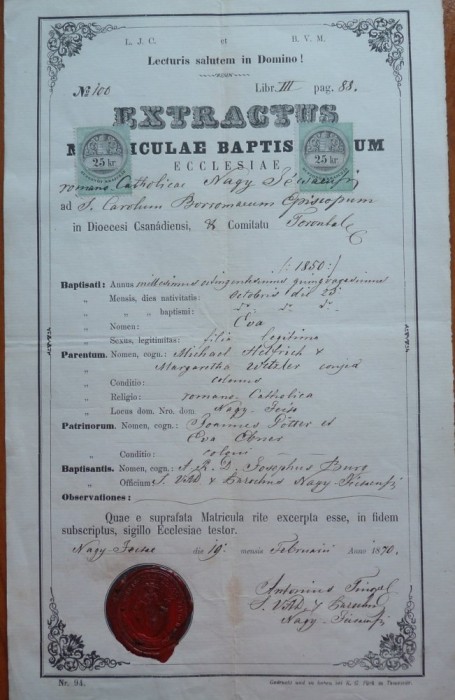 L. J. C. et B. V. M.
Lecturis salutem in Domino!
№ 100 Libr. III pag. 88.
EXTRACTUS
25 kr. 25 kr.
BAPTIS UM
ECCLESIAE
romano Catholicae Nagy
ad S. Carolum Borromaeum Episcopum
in Dioecesi Csanádiensi, & Comitatu Torontal
/: 1850 :/
Baptisati: Annus millesimus octingentesimus quinquagesimus
„ Mensis, dies nativitatis: Octobris die 25
„ „ „ baptismi:
„ Nomen: Eva
„ Sexus, legitimitas: filia legitima
Parentum. Nomen, cogn.: Michael Helfrich &
Margaretha Wetzler
„ Conditio: colonus
„ Religio: romano Catholica
„ Locus dom. Nro. dom
Patrinorum. Nomen, cogn.: Joannes Potter et
Eva Ebner
„ Conditio: coloni
Baptisantis. Nomen, cogn.: A. R. D. Josephus Burg
„ Officium:
Observationes:
Quae e suprafata Matricula rite excerpta esse, in fidem
subscriptus, sigillo Ecclesiae testor.
Nagy die 19 mensis Februarii Anno 1870.
Antonius
Nr. 94.